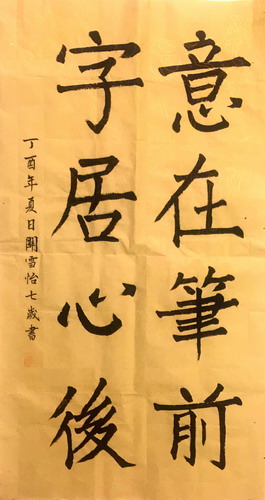 意在筆前
字居心後
丁酉年夏日關雪怡七歲書